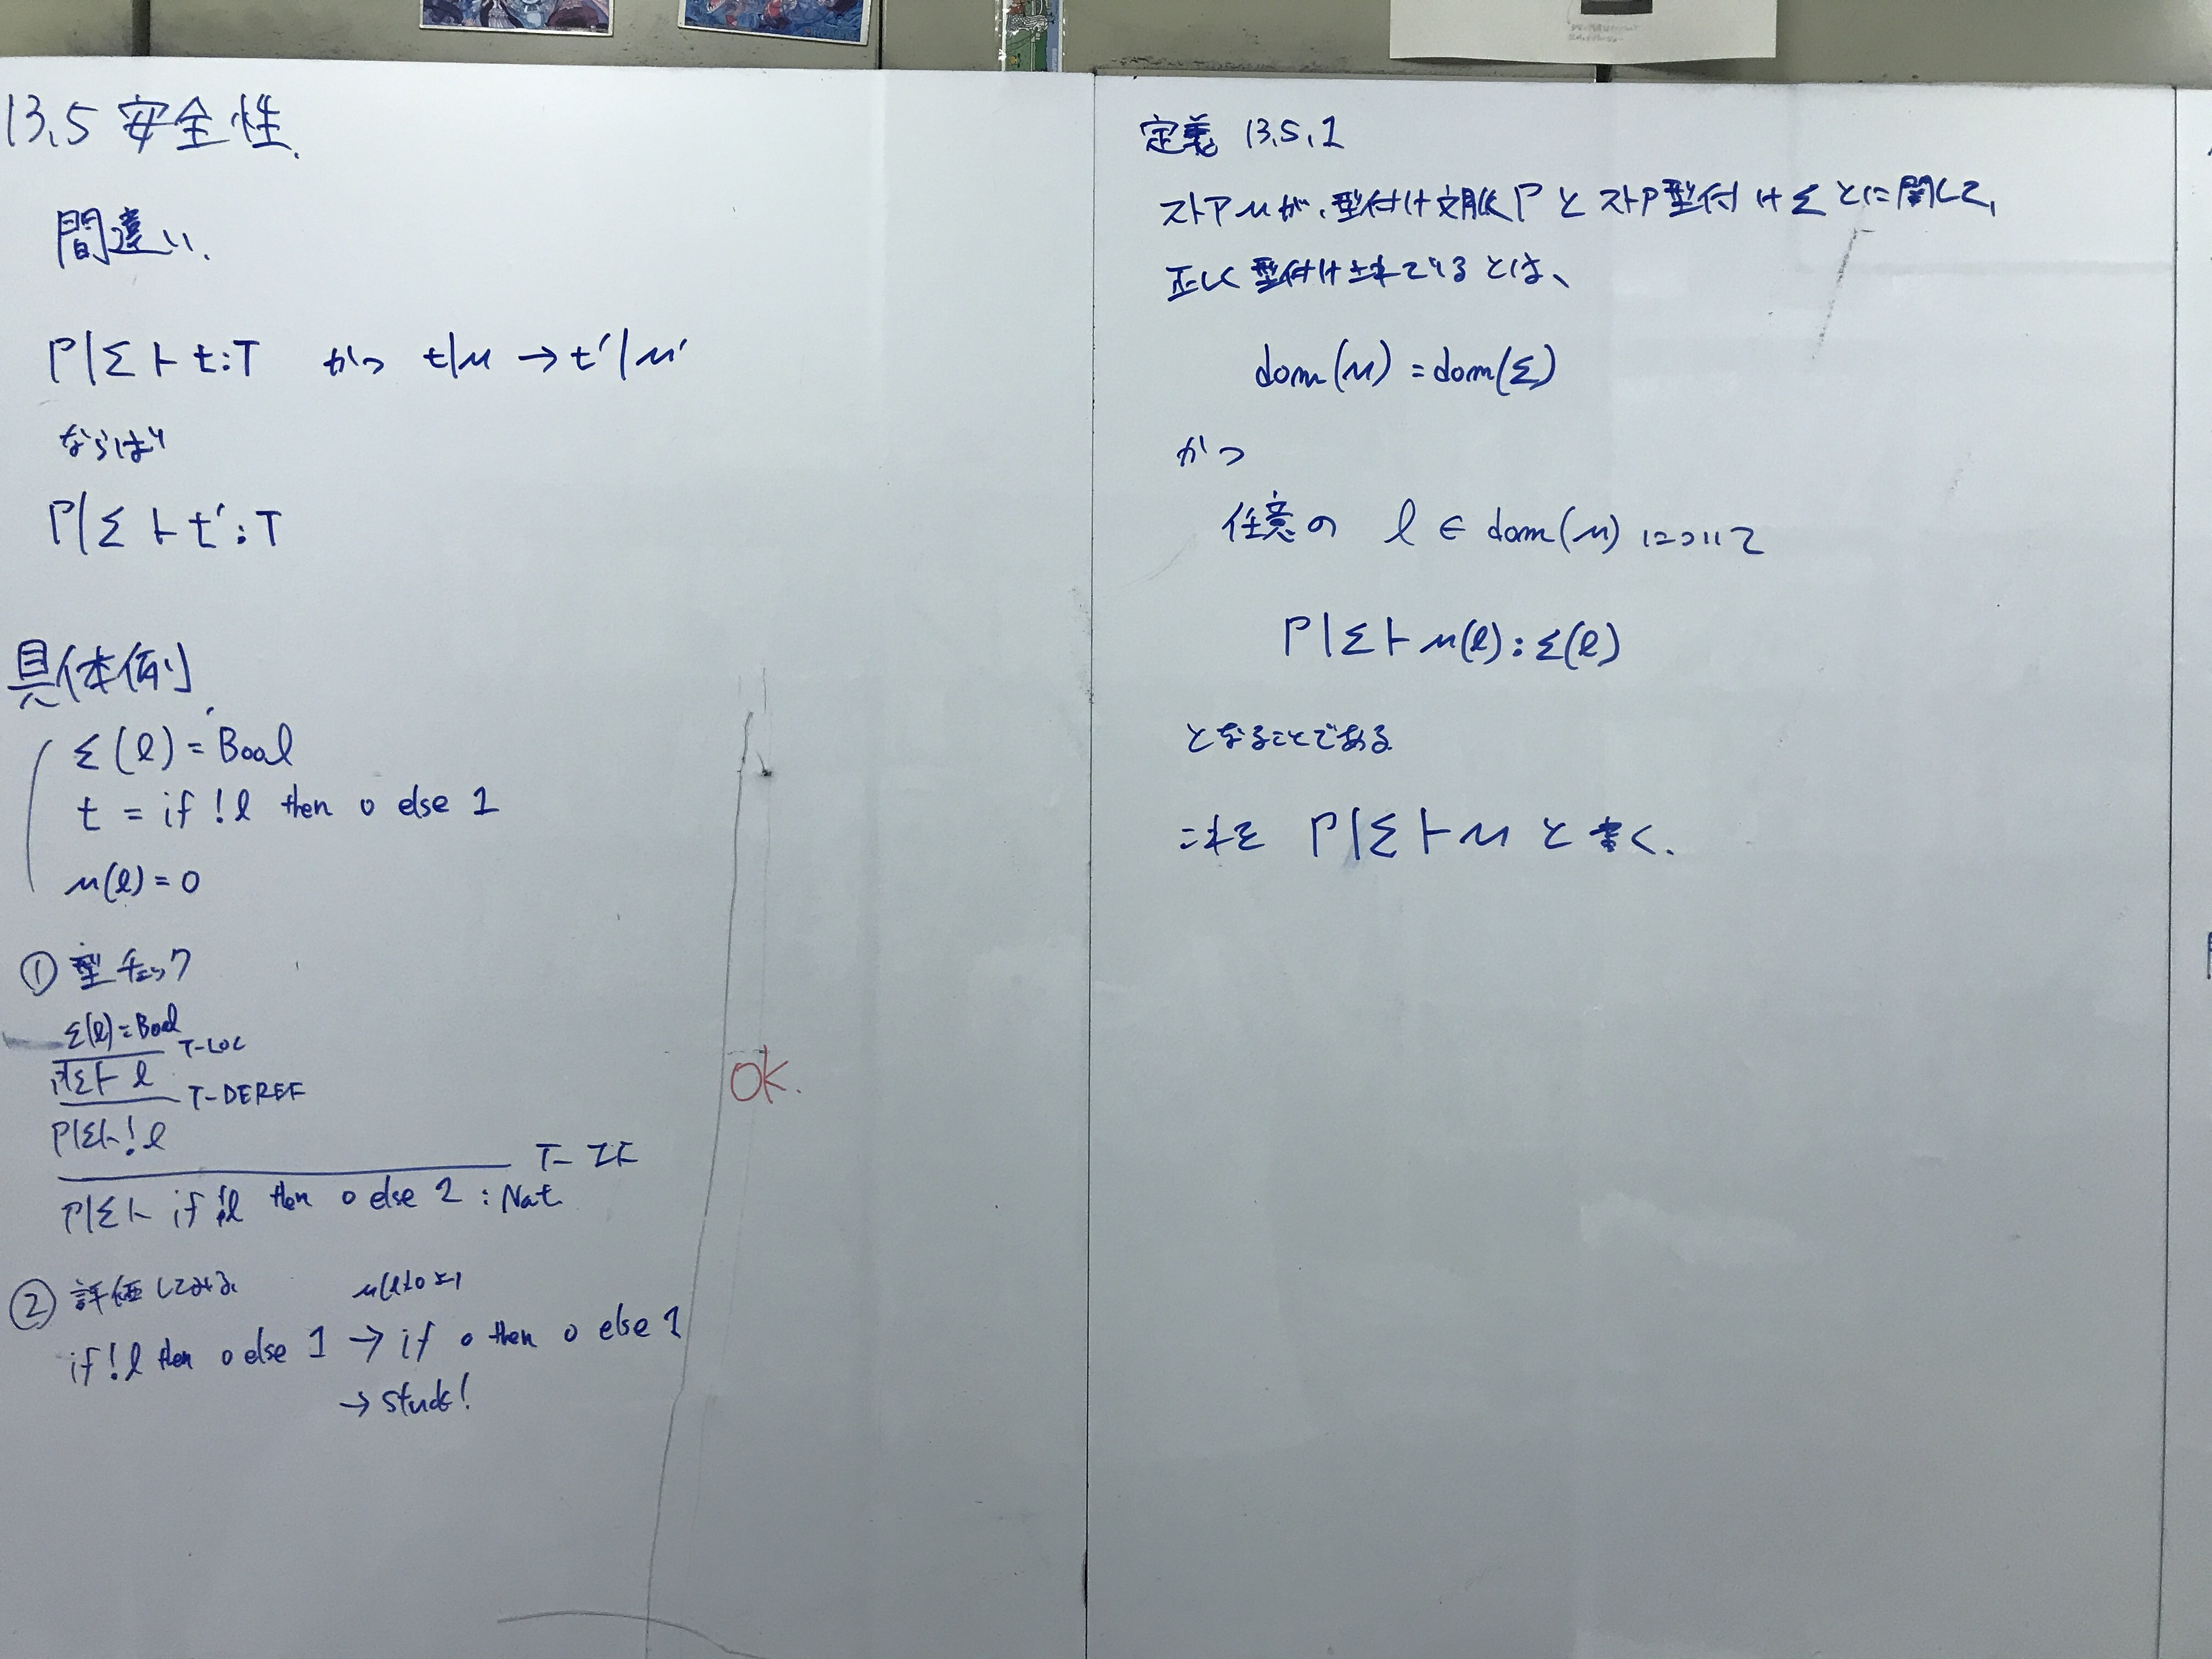 13.5 安全性.
間違い.
Γ|Σ ⊢ t:T かつ t|μ → t'|μ'
ならば
Γ|Σ ⊢ t':T
具体例
Σ(l) = Bool
t = if !l then 0 else 1
μ(l) = 0
① 型チェック
Σ(l) = Bool
T-LOC
Γ|Σ ⊢ l
T-DEREF
Γ|Σ ⊢ !l
T-IF
Γ|Σ ⊢ if !l then 0 else 1 : Nat
② 評価してみる
if !l then 0 else 1 → if 0 then 0 else 1
→ stuck!
OK.
定義 13.5.1
ストアμが、型付け文脈Γとストア型付けΣとに関して、
正しく型付けされているとは、
dom(μ) = dom(Σ)
かつ
任意の l ∈ dom(μ) について
Γ|Σ ⊢ μ(l) : Σ(l)
となることである
これを Γ|Σ ⊢ μ と書く.